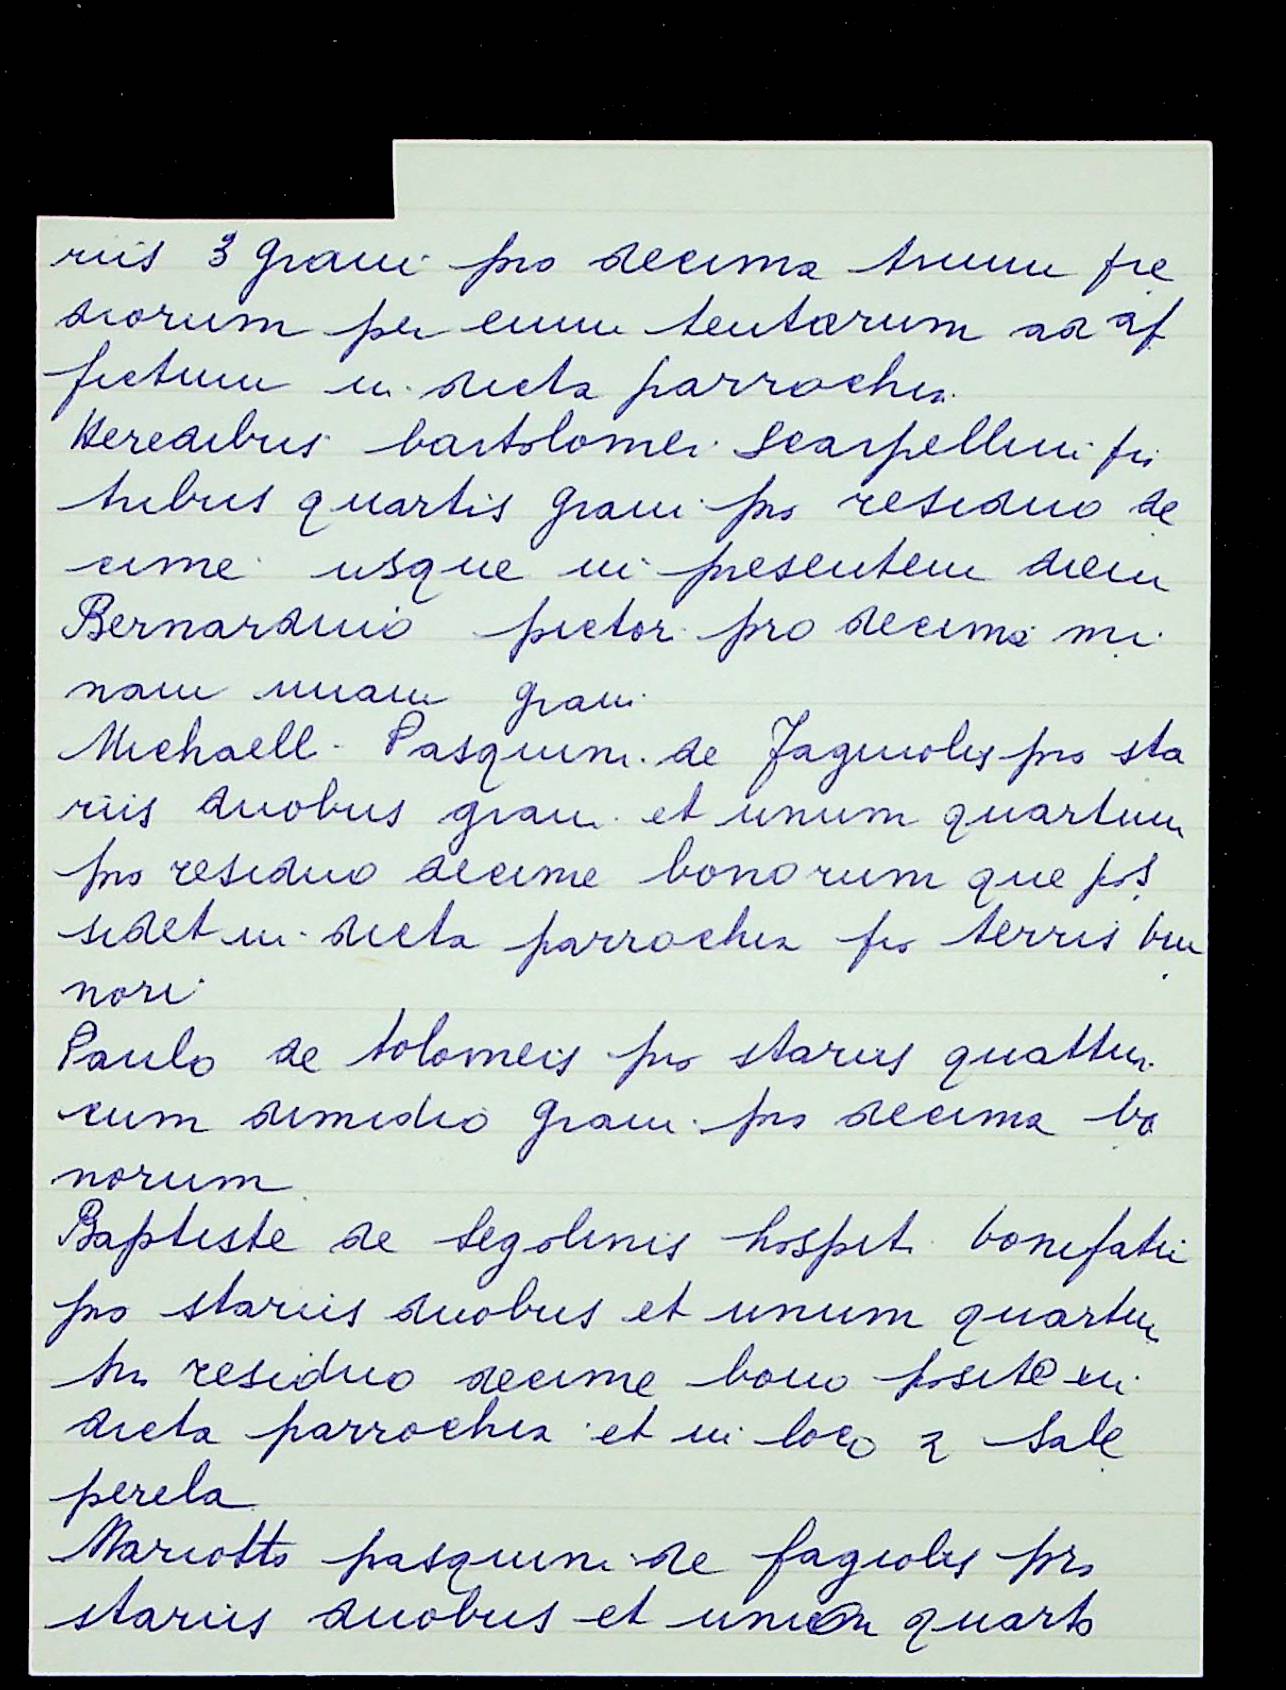 riis 3 grani pro decima trium pre
diorum per eum tentorum ad af
fictum in dicta parrochia
Heredibus bartolomei Scarpellini pri
tribus quartis grani pro residuo de
cime usque in presentem diem
Bernardino pictor pro decima mi
nam unam grani
Michaell Pasquini de Fagiuolis pro sta
riis duobus grani et unum quartum
pro residuo decime bonorum que pos
sidet in dicta parrochia pro terris bru
nori
Paulo de tolomeis pro stariis quattur
cum dimidio grani pro decima bo
norum
Baptiste de Segolinis hospit bonifatii
pro stariis duobus et unum quartum
pro residuo decime bono posito in
dicta parrochia et in loco 2 Sale
perela
Mariotto pasquini de fagiolis pro
stariis duobus et unum quarto